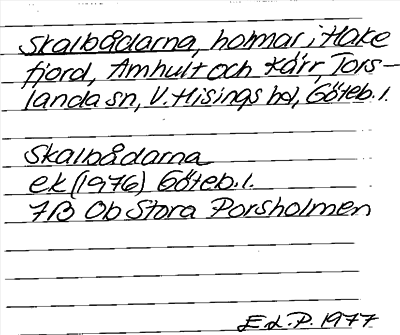 Skalbådarna, holmar i Hake
fjord, Amhult och Kärr, Tors-
landa sn, V. Hisings hd, Göteb. l.
Skalbådarna
ek (1976) Göteb. l.
7B Ob Stora Porsholmen
E.L.P. 1977